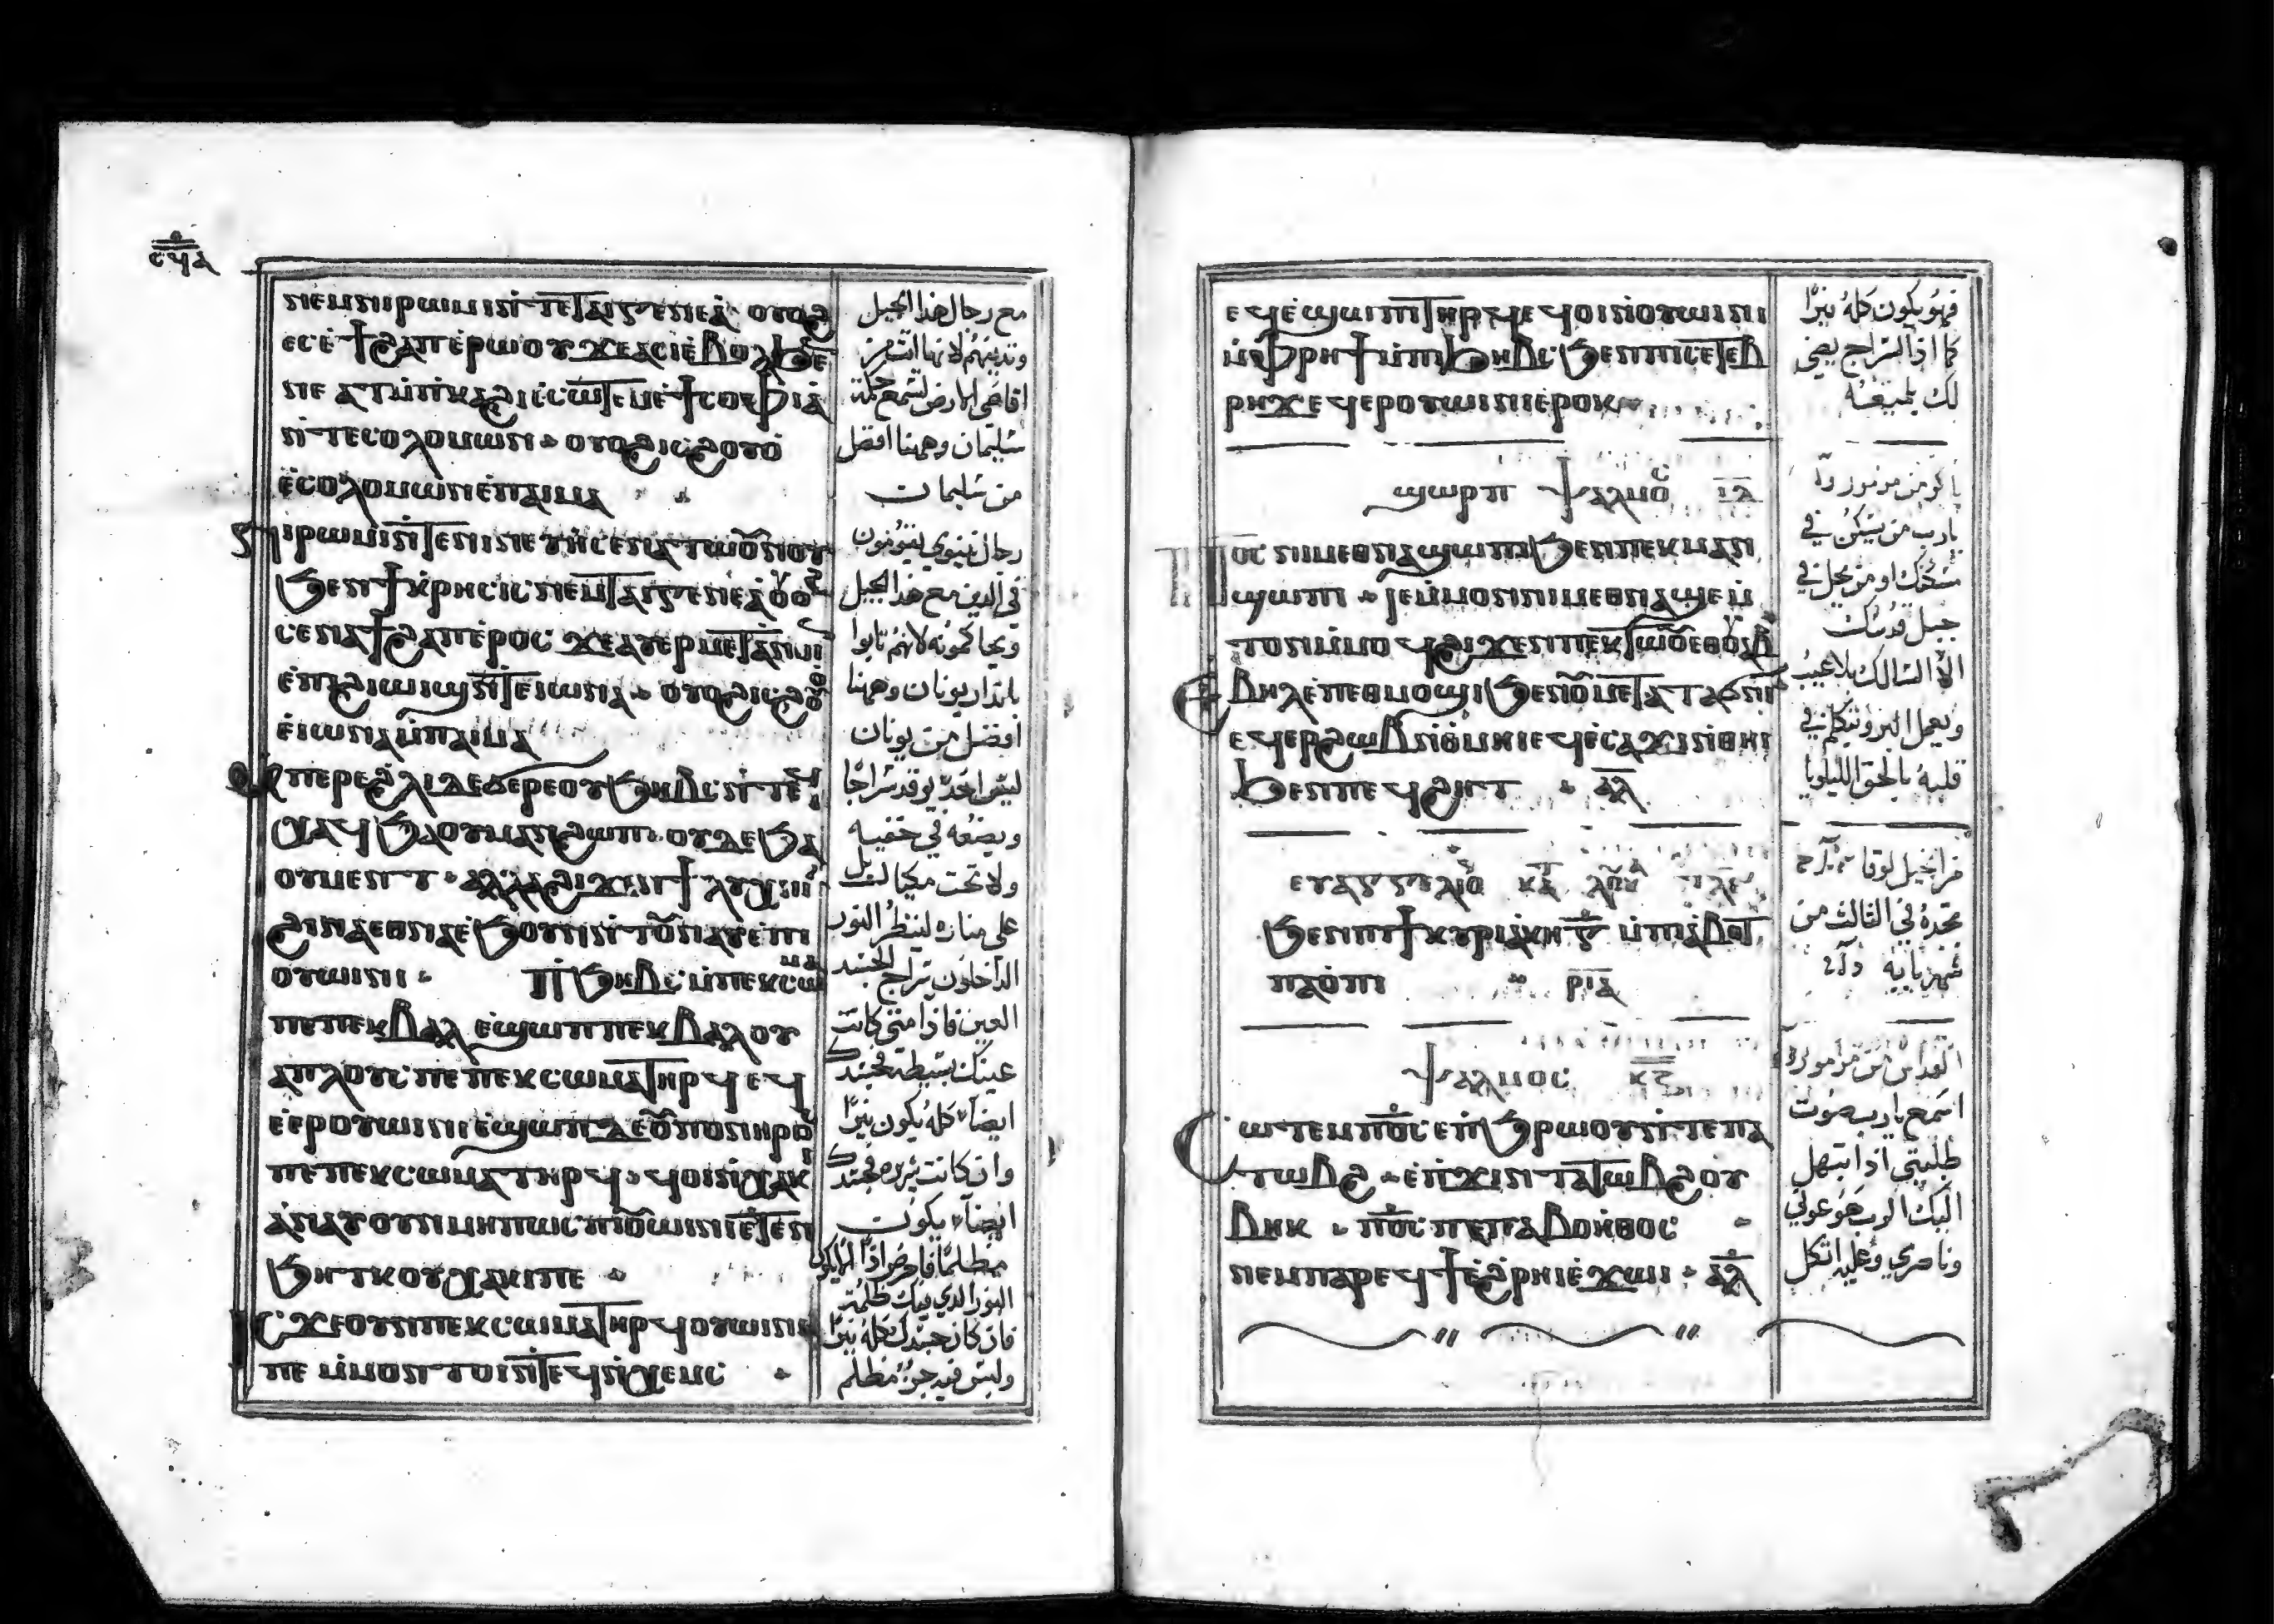 ⲥϥⲁ
ⲛⲉⲙⲛⲓⲣⲱⲙⲓ ⲛ̀ⲧⲉⲧⲁⲓⲅⲉⲛⲉⲁ̀ ⲟⲩⲟϩ
ⲉⲥⲉ̀ϯϩⲁⲡⲉ̀ⲣⲱⲟⲩ ϫⲉⲁⲥⲓ̀ⲉⲃⲟⲗϧⲉ
ⲛⲉ ⲁⲩⲙ̀ⲡⲕⲁϩⲓⲉ̀ⲥⲱⲧⲉⲙⲉ̀ϯⲥⲟⲫⲓⲁ̀
ⲛ̀ⲧⲉⲥⲟⲗⲟⲙⲱⲛ ⲟⲩⲟϩⲓⲥϩⲟⲩⲟ̀
ⲉ̀ⲥⲟⲗⲟⲙⲱⲛⲉ̀ⲡⲁⲓⲙⲁ
ⲛⲓⲣⲱⲙⲓⲛ̀ⲧⲉⲛⲓⲛⲉⲩⲏ̀ⲥⲉⲛⲁⲧⲱⲟⲩⲛⲟⲩ
ϧⲉⲛϯⲕ̀ⲣⲏⲥⲓⲥ ⲛⲉⲙⲧⲁⲓⲅⲉⲛⲉⲁ̀ⲟⲩⲟϩ
ⲥⲉⲛⲁϯϩⲁⲡⲉ̀ⲣⲟⲥ ϫⲉⲁⲩⲉⲣⲙⲉⲧⲁⲛⲟⲓⲛ
ⲉ̀ⲡϩⲓⲱⲓϣⲛ̀ⲧⲉⲓⲱⲛⲁ ⲟⲩⲟϩⲓⲥϩⲟⲩⲟ
ⲉ̀ⲓⲱⲛⲁⲙ̀ⲡⲁⲓⲙⲁ
ⲙⲡⲉⲣⲉϩ̀ⲗⲓⲇⲉϭⲉⲣⲉⲟⲩϧⲏⲃⲥ ⲛ̀ⲧⲉϥ
ⲭⲁϥϧⲁⲟⲩⲙⲁⲛϩⲱⲡ ⲟⲩⲇⲉϧⲁ
ⲟⲩⲙⲉⲛⲧ ⲁⲗⲗⲁϩⲓϫⲉⲛϯⲗⲩⲭⲛⲓ
ϩⲓⲛⲁⲉⲑⲛⲁⲉ̀ϧⲟⲩⲛⲛ̀ⲧⲟⲩⲛⲁⲩⲉ̀ⲡⲓ
ⲟⲩⲱⲓⲛⲓ ⲡⲓϧⲏⲃⲥ ⲙ̀ⲡⲉⲕⲥⲱⲙⲁ
ⲡⲉⲡⲉⲕⲃⲁⲗ ⲉϣⲱⲡⲡⲉⲕⲃⲁⲗⲟⲩ
ⲁⲡⲗⲟⲩⲥⲡⲉ ⲡⲉⲕⲥⲱⲙⲁⲧⲏⲣϥ ⲉϥ
ⲉ̀ⲉⲣⲟⲩⲱⲓⲛⲓ ⲉ̀ϣⲱⲡⲇⲉⲟⲩⲡⲟⲛⲏⲣⲟⲥ
ⲡⲉⲡⲉⲕⲥⲱⲙⲁⲧⲏⲣϥ ϥⲟⲓⲛ̀ⲭⲁⲕⲓ
ⲁⲛⲁⲩⲟⲩⲛⲙⲏⲡⲱⲥⲡⲓⲟⲩⲱⲓⲛⲓⲉ̀ⲧⲉⲛ
ϧⲏⲧⲕⲟⲩⲭⲁⲕⲓⲡⲉ
ⲓⲥϫⲉⲟⲩⲛⲡⲉⲕⲥⲱⲙⲁⲧⲏⲣϥⲟⲩⲱⲓⲛⲓ
ⲡⲉ ⲙ̀ⲙⲟⲛⲧⲟⲓⲛ̀ⲧⲉϥⲛ̀ⲭⲉⲙⲥ
مع رجال هذا الجيل
وتدينهم لانها اتت من
اقاصي الارض لتسمع حكمة
سليمان وههنا افضل
من سليمان
رجال نينوي يقومون
في الدين مع هذا الجيل
ويحاكمونه لانهم تابوا
بانذار يونان وههنا
افضل من يونان
ليس احد يوقد سراجا
ويضعه في خفيه
ولا تحت مكيال بل
على مناره لينظر النور
الداخلون سراج الجسد
العين فاذا متى كانت
عينك بسيطة فجسدك
ايضا كله يكون نيرا
وان كانت شريره فجسدك
ايضا يكون
مظلما فاحرص اذا الا يكون
النور الذي فيك ظلمة
فان كان جسدك كله نيرا
وليس فيه جزء مظلم
ⲉϥⲉ̀ϣⲱⲡⲓⲧⲏⲣϥⲉϥⲟⲓⲛ̀ⲟⲩⲱⲓⲛⲓ
ⲙ̀ⲫⲣⲏϯⲙ̀ⲡⲓϧⲏⲃⲥ ϧⲉⲛⲡⲓⲥⲉⲧⲉⲃ
ⲣⲏϫⲉϥⲉⲣⲟⲩⲱⲓⲛⲓⲉ̀ⲣⲟⲕ
ϣⲱⲣⲡ ⲯⲁⲗⲙⲟⲥ ⲓⲇ
ⲡⲟⲥ ⲛⲓⲙⲉⲑⲛⲁϣⲱⲡⲓϧⲉⲛⲡⲉⲕⲙⲁⲛ
ϣⲱⲡⲓ ⲓⲉⲙ̀ⲙⲟⲛⲛⲓⲙⲉⲑⲛⲁϣⲉⲙ̀
ⲧⲟⲛⲙ̀ⲙⲟϥϩⲓϫⲉⲛⲡⲉⲕⲧⲱⲟⲩⲉⲑⲟⲩⲁⲃ
ⲉⲃⲏⲗⲉ̀ⲡⲉⲑⲙⲟϣⲓϧⲉⲛⲟⲩⲙⲉⲧⲁⲧⲁϭⲛⲓ
ⲉϥⲉⲣϩⲱⲃⲛ̀ⲑⲙⲏⲓ ⲉϥⲉ̀ⲥⲁϫⲓⲛ̀ⲑⲙⲏⲓ
ϧⲉⲛⲡⲉϥϩⲏⲧ ⲁⲗ
ⲉⲩⲁⲅⲅⲉⲗⲓⲟ ⲕⲧ ⲗⲟⲩⲕ
ϧⲉⲛϯⲕⲩⲣⲓⲁⲕⲏ ⲅ ⲙ̀ⲡⲓⲁ̀ⲃⲟⲧ
ⲡⲁⲟ̀ⲡⲓ ⲣⲓⲇ
ⲯⲁⲗⲙⲟⲥ ⲕⲍ
ⲥⲱⲧⲉⲙⲡⲟⲥ ⲉⲡ̀ϧⲣⲱⲟⲩⲛ̀ⲧⲉⲡⲁ
ⲧⲱⲃϩ ⲉⲡ̀ϫⲓⲛⲧⲁⲧⲱⲃϩⲟⲩ
ⲃⲏⲕ ⲡⲟⲥ ⲡⲉⲡⲁⲃⲟⲏ̀ⲑⲟⲥ
ⲛⲉⲙⲡⲁⲣⲉϥϯⲉ̀ϩⲣⲏⲓⲉ̀ϫⲱⲓ ⲁⲗ
فهو يكون كله نيرا
كما اذا السراج يضي
لك بلمعته
باكر من مزمور
يارب من يسكن في
مسكنك او من يحل في
جبل قدسك
الا السالك بلا عيب
ويعمل البر ويتكلم في
قلبه بالحق الليلويا
من انجيل لوقا
تجده في الثالث من
شهر بابه
القداس من مزمور
اسمع يارب صوت
طلبتي اذا ابتهل
اليك الرب هو عوني
وناصري وعليه اتكل